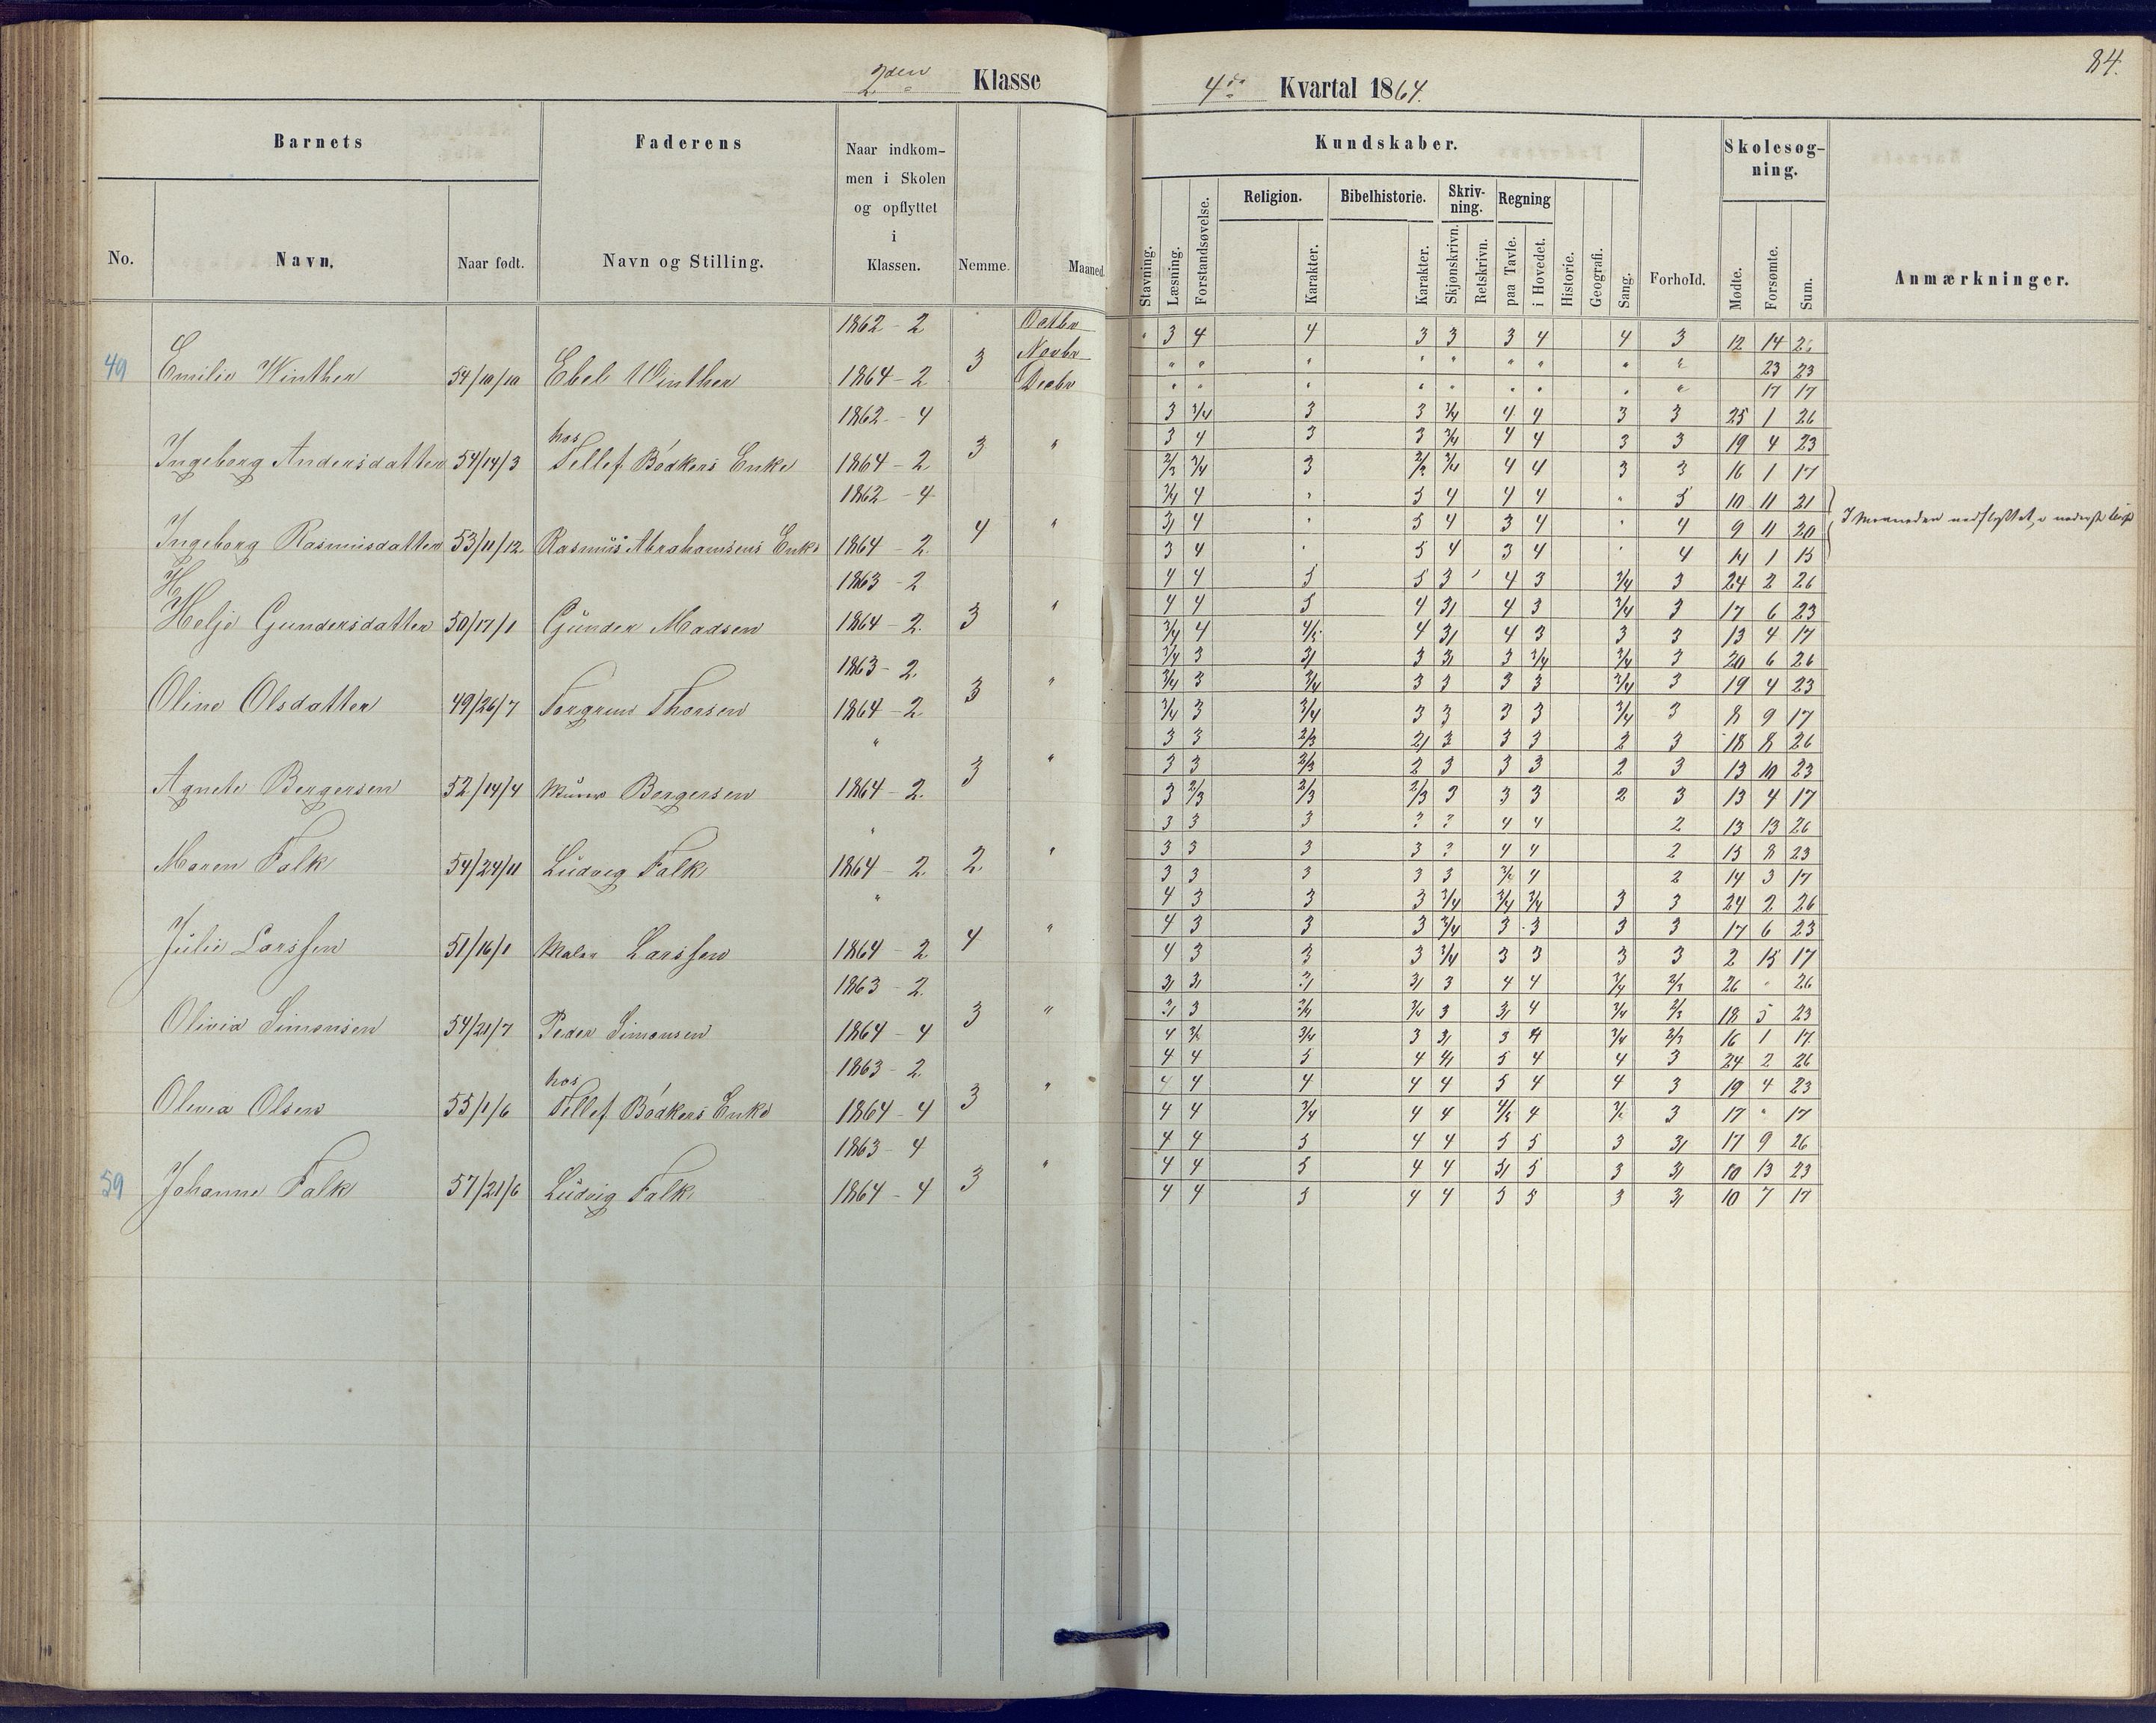 2den Klasse
4de Kvartal 1864.
84.
Barnets
Faderens
Naar indkom-
men i Skolen
og opflyttet
i
Klassen.
No.
Navn.
Naar født.
Navn og Stilling.
Nemme.
Maaned.
Kundskaber.
Skolesøg-
ning.
Religion.
Bibelhistorie.
Skriv-
ning.
Regning
Stavning.
Læsning.
Forstandsøvelse.
Karakter.
Karakter.
Skjønskrivn.
Retskrivn.
paa Tavle.
i Hovedet.
Historie.
Geografi.
Sang.
Forhold.
Mødte.
Forsømte.
Sum.
Anmærkninger.
1862 - 2 Octbr " 3 4 4 3 3 3 4 4 3 12 14 26
49 Emilie Winther 54/10/10 Ebel Winther 1864 - 2 3 Novbr " " " " " " " " " 23 23
Decbr " " " " " " " " " 17 17
1862 - 4 3 3/4 3 3 3/4 4 4 3 3 25 1 26
hos 3 4 3 3 3/4 4 4 3 3 19 4 23
Ingeborg Andersdatter 54/14/3 Tellef Bødkers Enke 1864 - 2 3 " 2/3 3/4 3 2/3 3/4 4 4 3 3 16 1 17
1862 - 4 3/4 4 " 5 4 4 4 " 5 10 11 21
3/ 4 " 5 4 3 4 " 4 9 11 20
Ingeborg Rasmusdatter 53/11/12 Rasmus Abrahamsens Enke 1864 - 2. 4 " 3 4 " 5 4 3 4 " 4 14 1 15
1863 - 2 4 4 5 5 3 4 3 3/4 3 24 2 26
4 4 5 4 3/ 4 3 3/4 3 17 6 23
Helje Gundersdatter 50/17/1 Gunder Madsen 1864 - 2. 3 " 3/4 4 4/5 4 3/ 4 3 3 3 13 4 17
1863 - 2. 3/4 3 3/ 3 3/ 3 3/4 3/4 3 20 6 26
3/4 3 3/4 3 3 3 3 3/4 3 19 4 23
Oline Olsdatter 49/26/7 Torgrim Thorsen 1864 - 2 3 " 3/4 3 3/4 3 3 3 3 3/4 3 8 9 17
" 3 3 2/3 2/ 3 3 3 2 3 18 8 26
3 3 2/3 2 3 3 3 2 3 13 10 23
Agnete Bergersen 52/14/4 Murer Borgersen 1864 - 2. 3 " 3 2/3 2/3 2/3 3 3 3 2 3 13 4 17
" 3 3 3 4 4 2 13 13 26
3 3 3 3 4 4 2 15 8 23
Maren Falk 54/24/11 Ludvig Falk 1864 - 2 2. " 3 3 3 3 3 4 2 14 3 17
" 4 3 3 3 3/4 3/4 3/4 3 3 24 2 26
4 3 3 3 3/4 3 3 3 3 17 6 23
Julie Larssen 51/16/1 Maler Larssen 1864 - 2 4 " 4 3 3 3 3/4 3 3 3 3 2 15 17
1863 - 2. 3/ 3/ 3/ 3/ 3 4 4 3/4 2/3 26 " 26
3/ 3 3/4 3/4 3 3/ 4 3/4 2/3 18 5 23
Olivia Simonsen 54/21/7 Peder Simonsen 1864 - 4 3 " 4 3/4 3 3/ 3 4 3/4 2/3 16 1 17
1863 - 2. 4 4 5 4 4/ 5 4 4 3 24 2 26
hos 4 4 4 4 4 5 4 4 3 19 4 23
Olevia Olsen 55/1/6 Tellef Bødkers Enke 1864 - 4 3 " 4 4 3/4 4 4 4/5 4 3 17 " 17
1863 - 4 4 4 5 4 4 5 5 3 3/ 17 9 26
4 4 5 4 4 5/ 5 3 3/ 10 13 23
59 Johanne Falk 57/21/6 Ludvig Falk 1864 - 4 3 " 4 4 5 4 4 5 5 3 3/ 10 7 17
nedflyttet